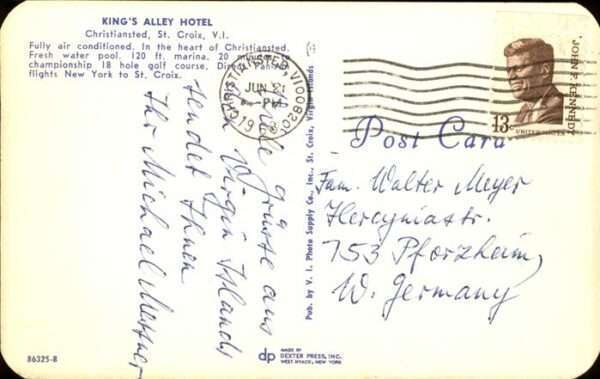 KING'S ALLEY HOTEL
Christiansted, St. Croix, V.I.
Fully air conditioned. In the heart of Christiansted.
Fresh water pool. 120 ft. marina. 20 minutes
championship 18 hole golf course. Direct Pan Am
flights New York to St. Croix.
Viele Grüsse aus
den Virgin Islands
sendet Ihnen
Ihr Michael
86325-B
Pub. by V. I. Photo Supply Co., Inc., St. Croix, Virgin Islands
dp
MADE BY
DEXTER PRESS, INC.
WEST NYACK, NEW YORK
CHRISTIANSTED, VI 00820
JUN 21
PM
19
JOHN F. KENNEDY
13c
UNITED STATES
Post Card
Fam. Walter Meyer
Hercyniastr.
753 Pforzheim,
W. Germany